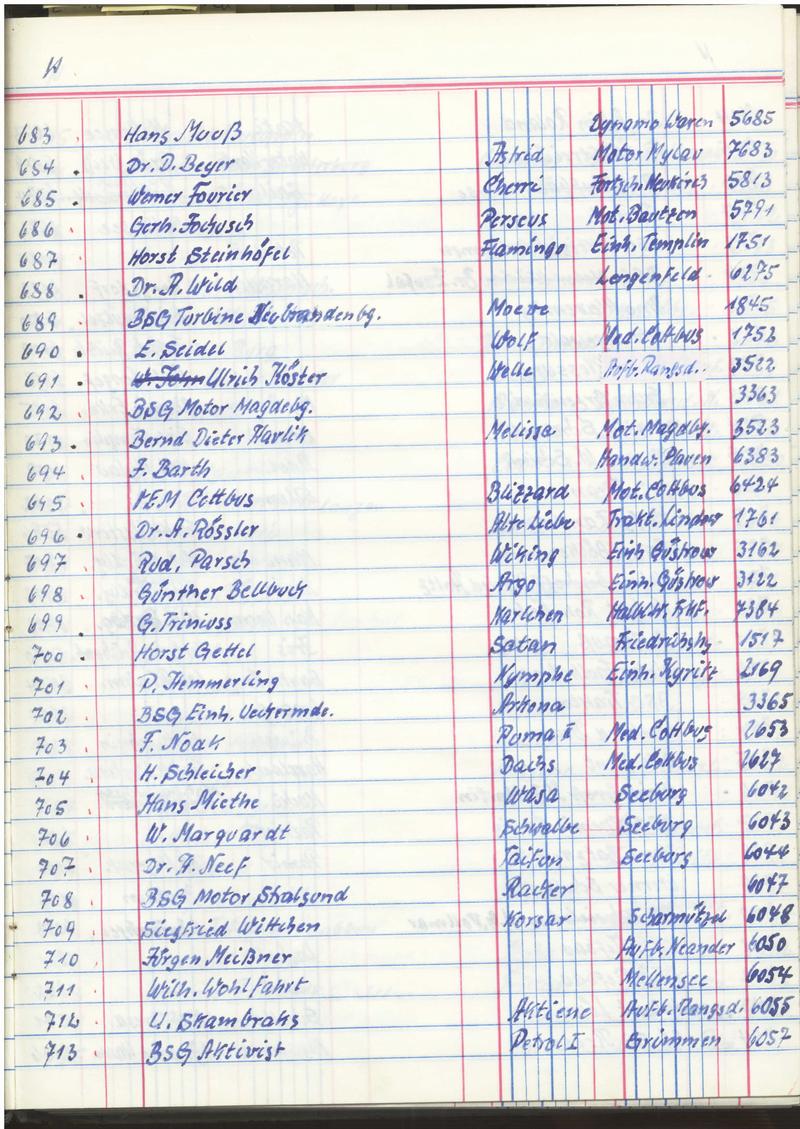 683 Hans Mooß Dynamo Waren 5685
684 Dr. D. Beyer Astrid Motor Mylau 7683
685 Werner Fourier Cherri Fortsch. Neukirch 5813
686 Gerh. Jochusch Perseus Mot. Bautzen 5791
687 Horst Steinhöfel Flamingo Einh. Templin 1751
688 Dr. A. Wild Lengenfeld 6275
689 BSG Turbine Neubrandenbg. Moewe 1845
690 E. Seidel Wolf Med. Cottbus 1752
691 W. John Ulrich Köster Welle Aufb. Rangsd. 3522
692 BSG Motor Magdebg. 3363
693 Bernd Dieter Havlik Melissa Mot. Magdbg. 3523
694 F. Barth Handw. Plauen 6383
695 VEM Cottbus Blizzard Mot. Cottbus 6424
696 Dr. A. Rössler Alte Liebe Trakt. Lindow 1761
697 Rud. Parsch Wiking Einh Güstrow 3162
698 Günther Bellbuch Argo Einh. Güstrow 3122
699 G. Triniuss Karlchen Halbl.W. Frkf. 7384
700 Horst Gettel Satan Friedrichshg 1517
701 P. Hemmerling Nymphe Einh. Kyritz 2169
702 BSG Einh. Ueckermde. Arkona 3365
703 F. Noak Puma II Med. Cottbus 2653
704 H. Schleicher Dachs Med. Cottbus 2627
705 Hans Miethe Wasa Seeburg 6042
706 W. Marquardt Schwalbe Seeburg 6043
707 Dr. H. Neef Taifun Seeburg 6044
708 BSG Motor Stralsund Racker 6047
709 Siegfried Wittchen Korsar Scharmützel 6048
710 Jürgen Meißner Aufb. Neander 6050
711 Wilh. Wohlfahrt Mellensee 6054
712 U. Skambraks Aktiene Aufb. Rangsd. 6055
713 BSG Aktivist Petrol I Grimmen 6057